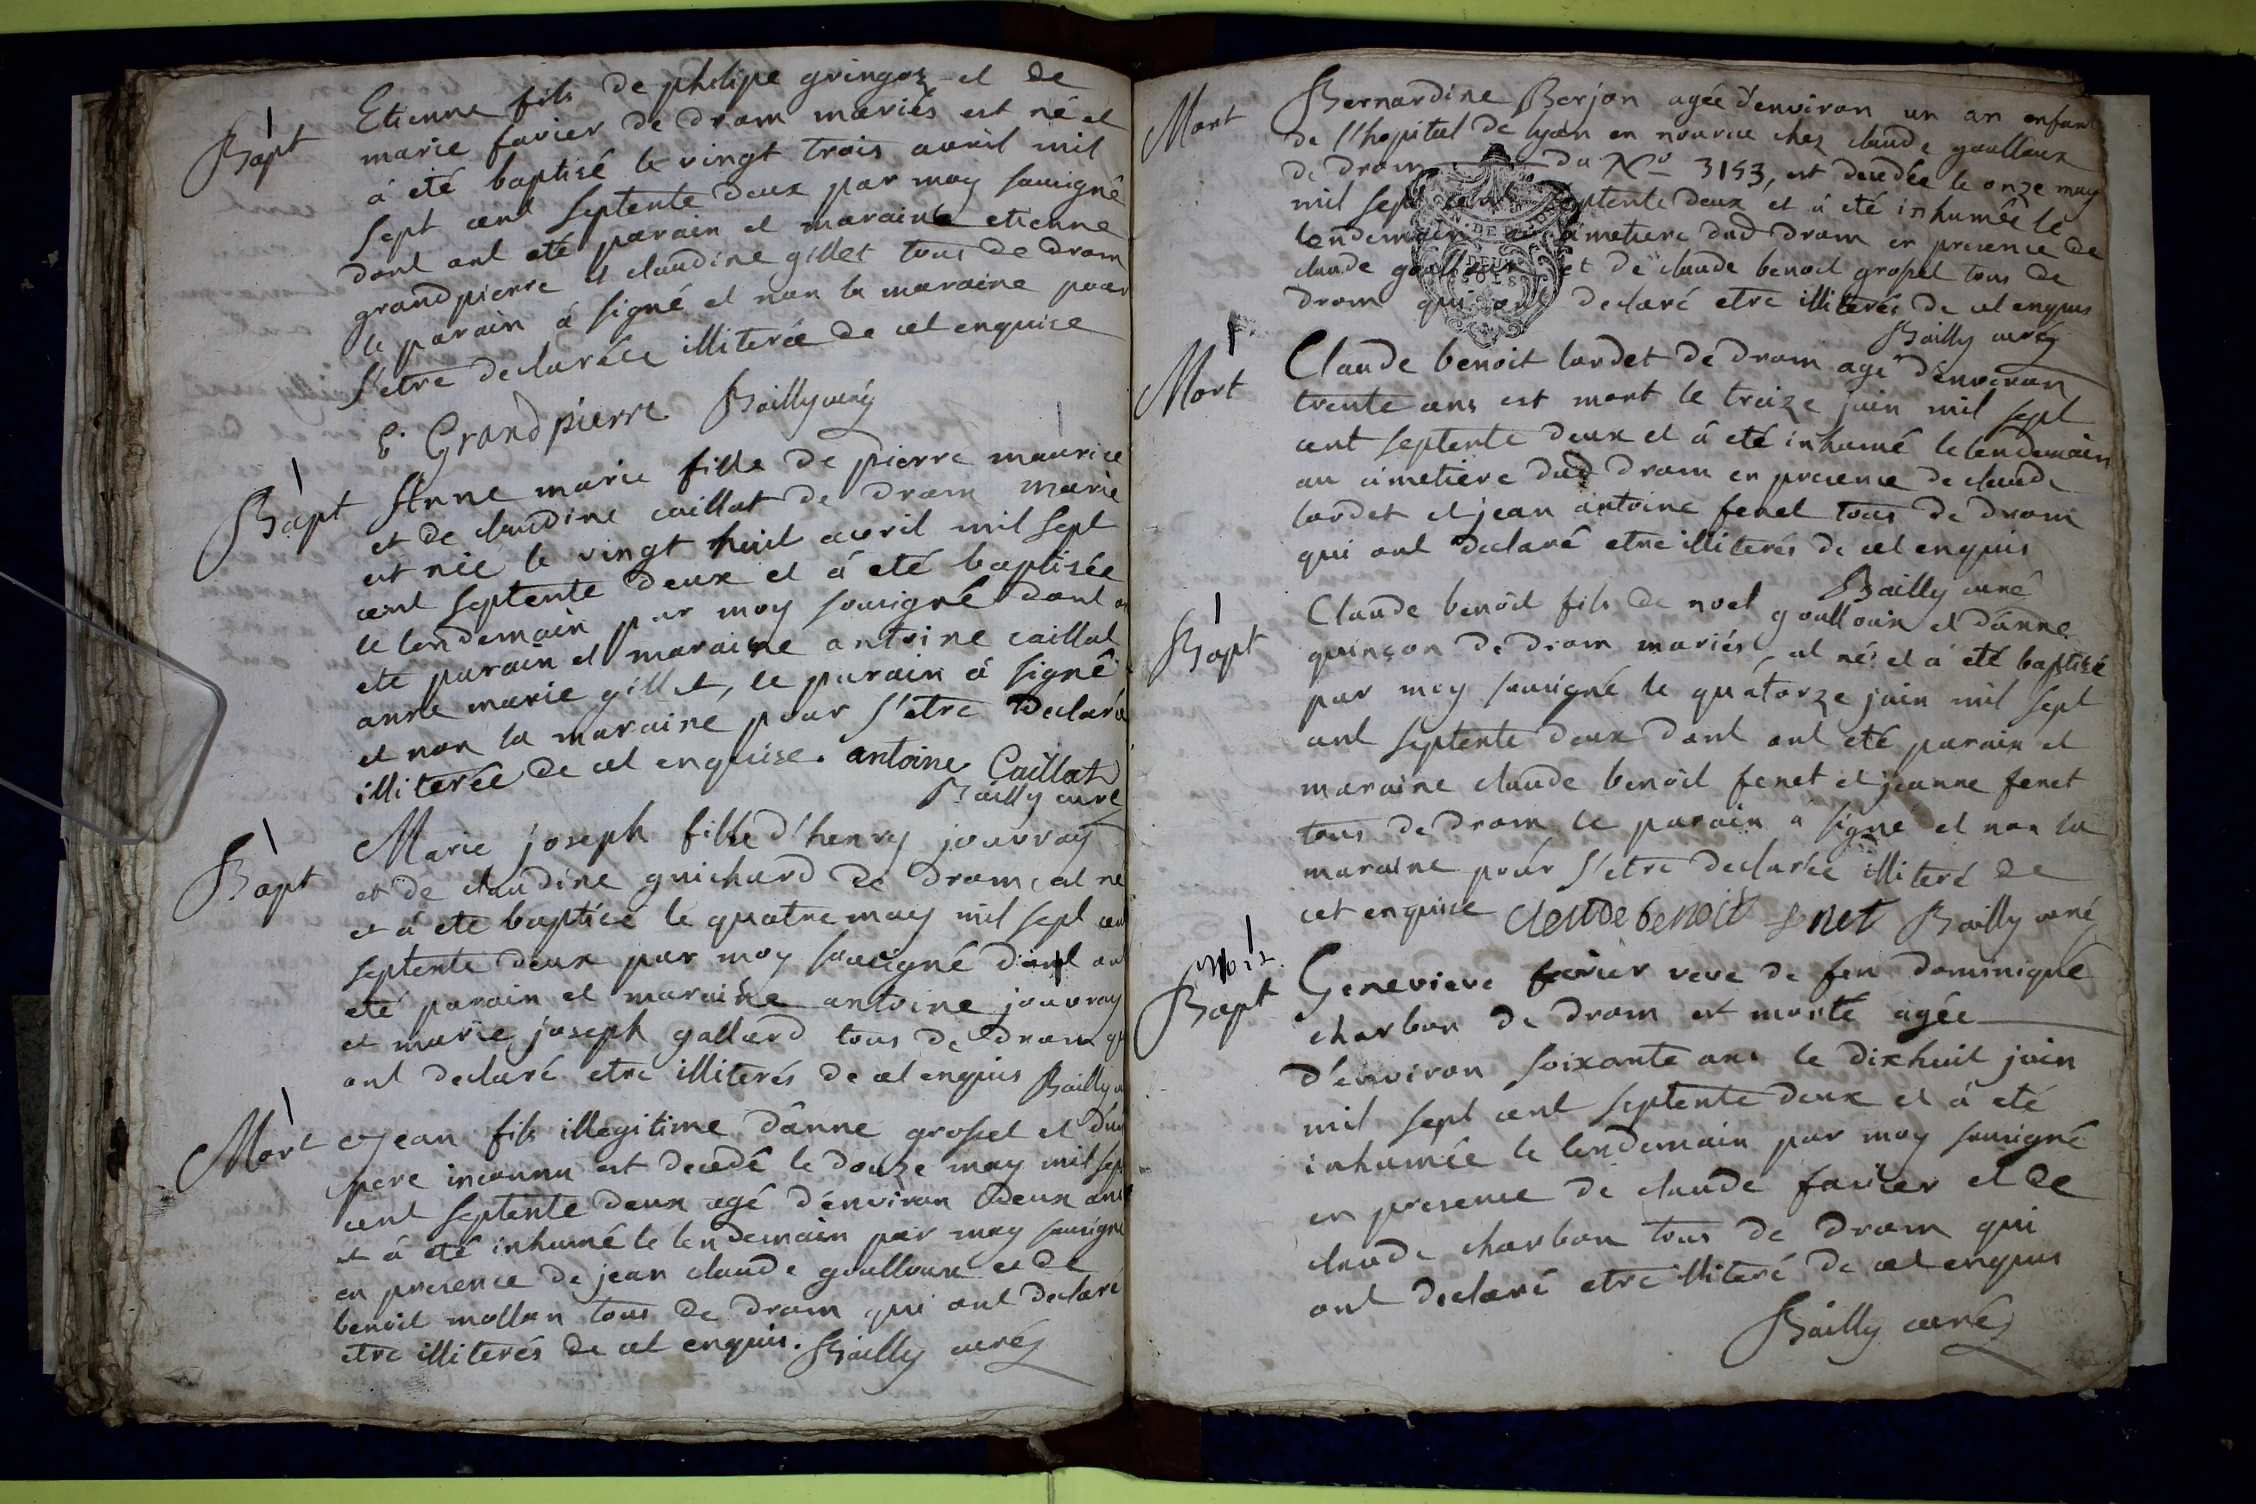 Bapt
Etienne fils de philipe gringoz et de
marie favier de dram mariés est né et
á eté baptisé le vingt trois avril mil
sept cent septente deux par moy sousigné
dont ont eté parain et maraine etienne
grandpierre et claudine gillet tous de dram
le parain á signé et non la maraine pour
s'etre declarée illiterée de cet enquise
E. Grandpierre Bailly curé
Bapt
Anne marie fille de pierre maurice
et de claudine caillat de dram marie
est née le vingt huit avril mil sept
cent septente deux et á eté baptisée
le lendemain par moy sousigné dont
eté parain et maraine antoine caillat
anne marie gillet, le parain á signé
et non la maraine pour s'etre declarée
illiterée de cet enquise. antoine Caillat
Bailly curé
Bapt
Marie joseph fille d'henry jouvray
et de claudine guichard de dram, et né
et á ete baptisée le quatre may mil sept cent
septente deux par moy sousigné dont ont
eté parain et maraine antoine jouvray
et marie joseph gallard tous de dram
ont declaré etre illiterés de cet enquis Bailly
Mort
Jean fils illegitime d'anne grospel et d'un
pere inconnu est decedé le douze may mil sept
cent septente deux agé d'environ deux ans
et á eté inhumé le lendemain par moy sousigné
en presence de jean claude goulloux et de
benoit mollan tous de dram qui ont declaré
etre illiterés de cet enquis. Bailly curé
Mort
Bernardine Berjon agée d'environ un an enfant
de l'hopital de lyon en nourice chez claude goulloux
de dram du No 3153, est decedée le onze may
mil sept cent septente deux et á eté inhumée le
lendemain au cimetiere dud dram en presence de
claude goulloux et de claude benoit grospel tous de
dram qui ont declaré etre illiterés de cet enquis
Bailly curé
DEUX
SOLS
Mort
Claude benoit lardet de dram agé d'environ
trente ans est mort le treize juin mil sept
cent septente deux et á eté inhumé le lendemain
au cimetiere dud dram en presence de claude
lardet et jean antoine fenet tous de dram
qui ont declaré etre illiterés de cet enquis
Bailly curé
Bapt
Claude benoit fils de noel goulloux et d'anne
quinçon de dram mariés, et né et á eté baptisé
par moy sousigné le quatorze juin mil sept
cent septente deux dont ont eté parain et
maraine claude benoit fenet et jeanne fenet
tous de dram le parain á signé et non la
maraine pour s'etre declarée illiteré de
cet enquise claude benoit fenet Bailly curé
mort.
Bapt
Genevieve favier veve de feu dominique
charbon de dram est morte agée
d'environ soixante ans le dixhuit juin
mil sept cent septente deux et á eté
inhumée le lendemain par moy sousigné
en presence de claude favier et de
claude charbon tous de dram qui
ont declaré etre illiteré de cet enquis
Bailly curé